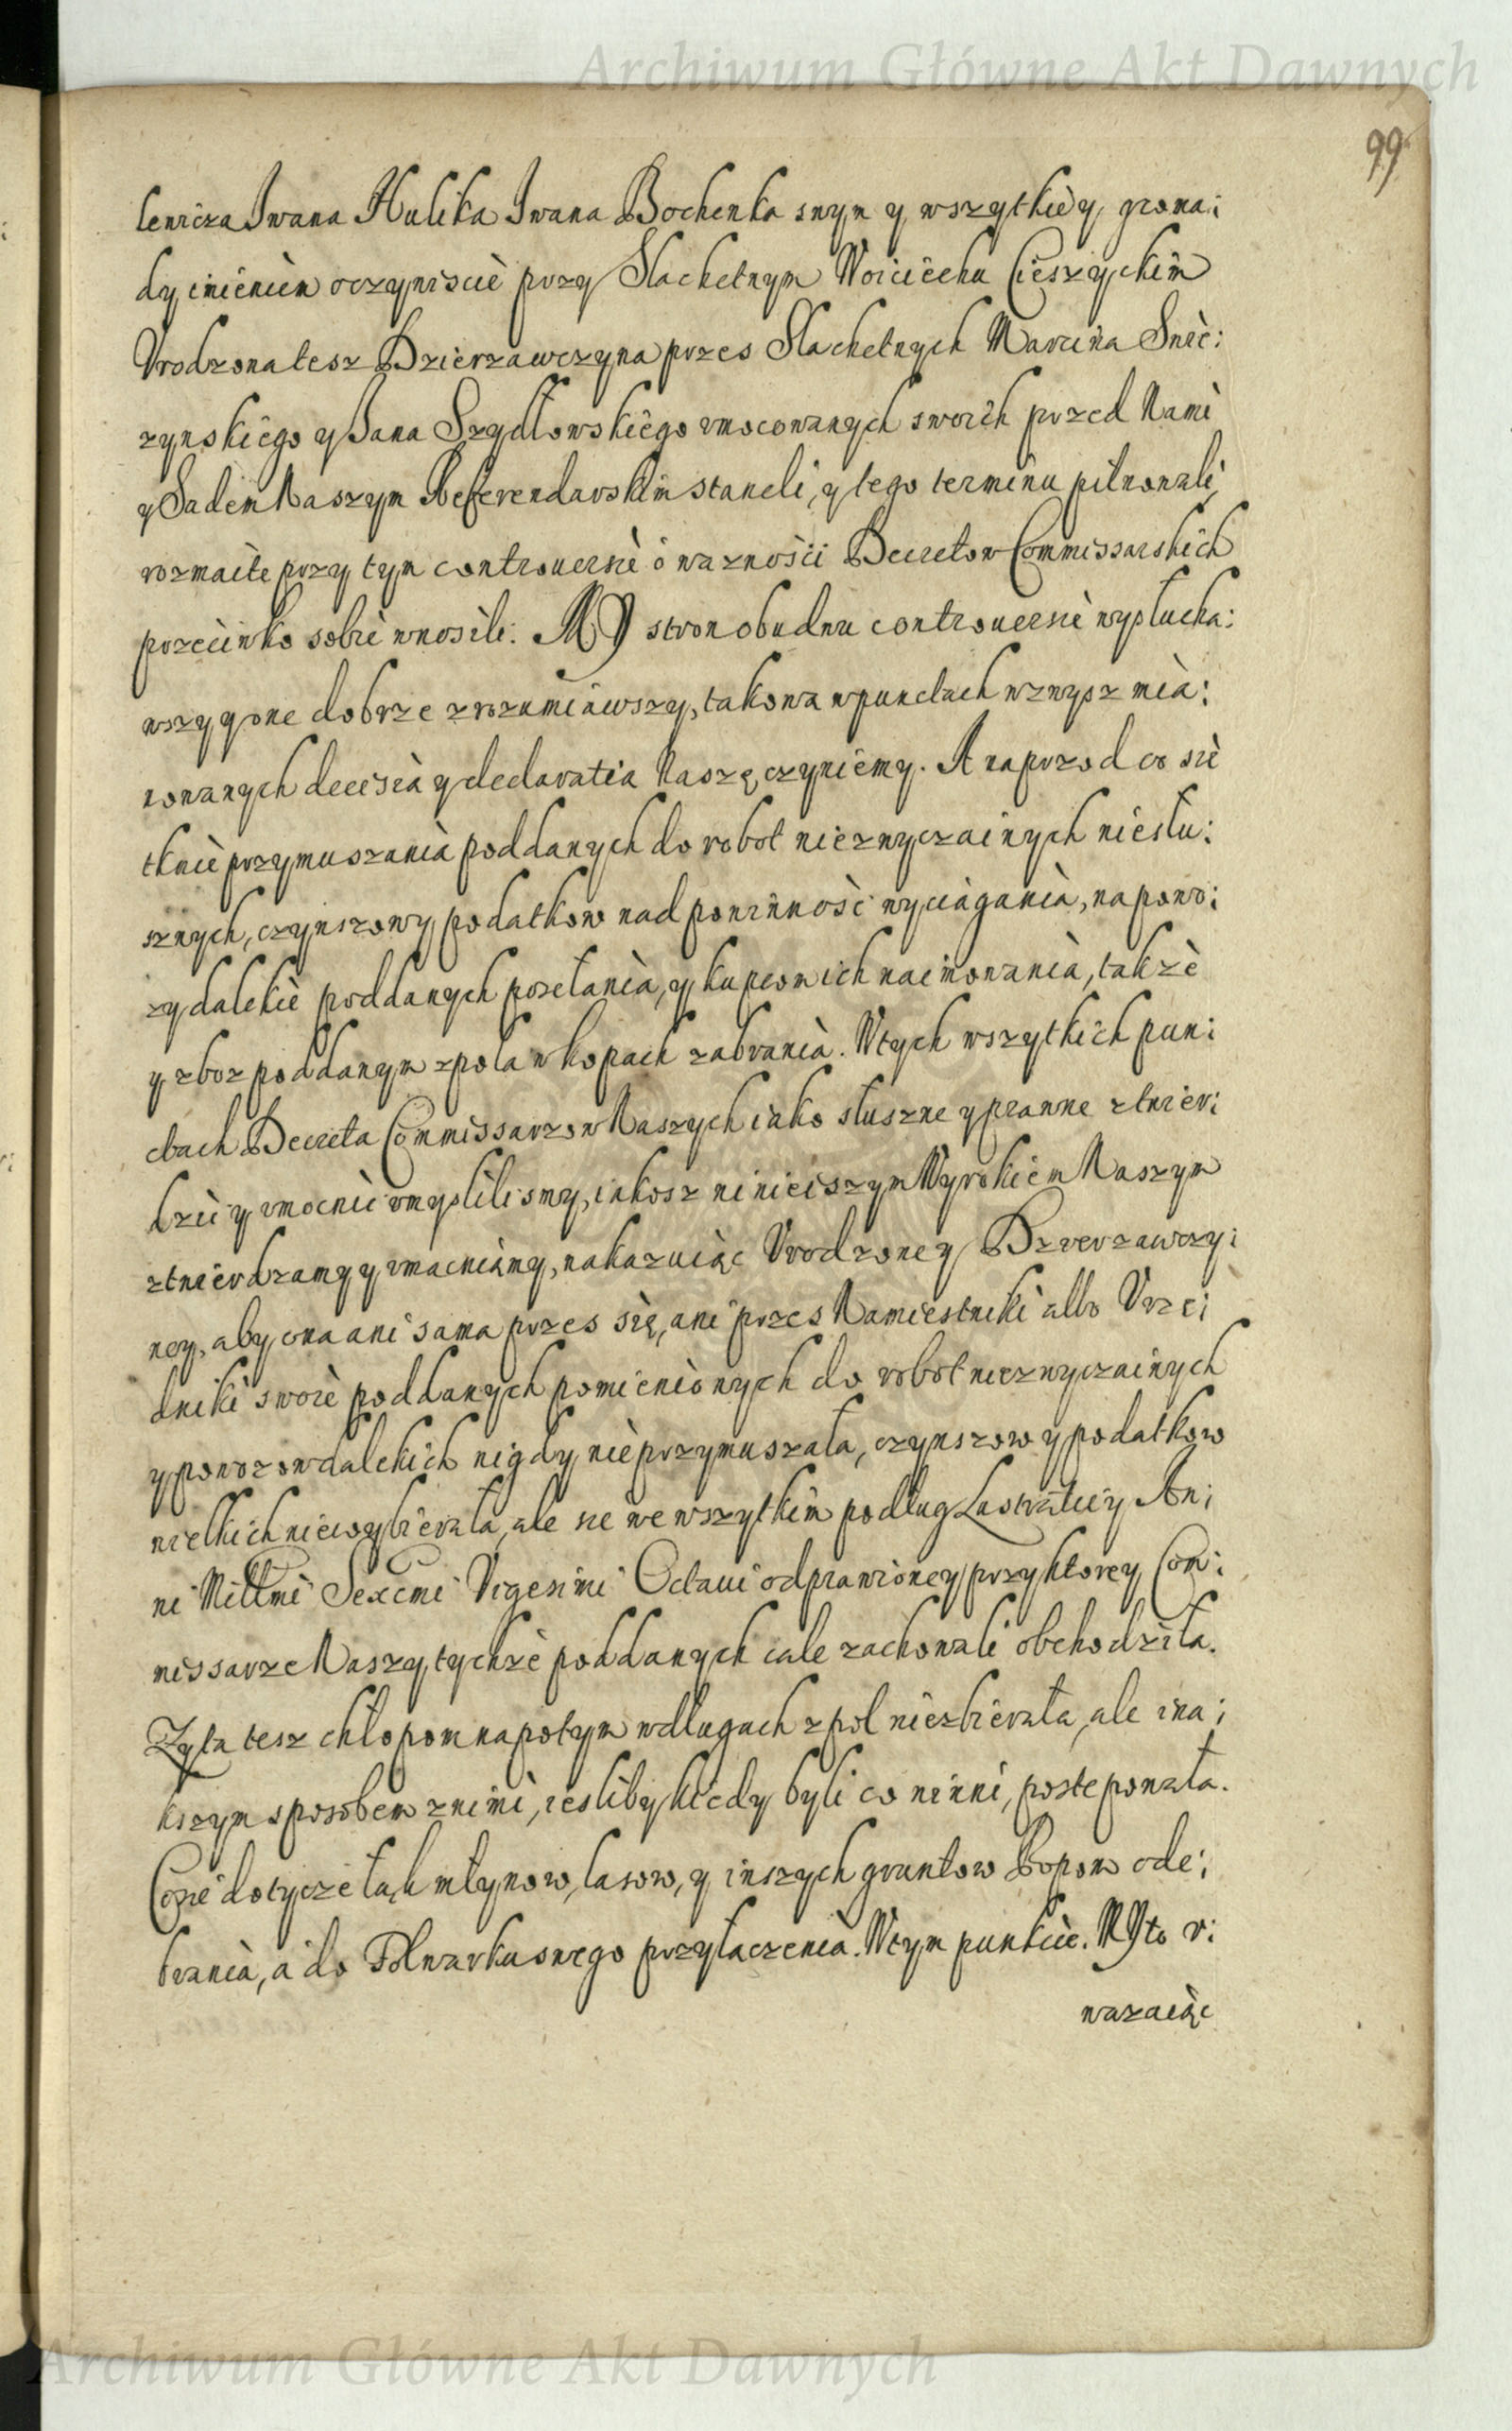 Archiwum Główne Akt Dawnych
99
lewicza Iwana Hulika Iwana Bochenka swym y wszytkiey groma:
dy imieniem oczywiscie przy Slachetnym Woiciechu Cieszyckim
Vrodzona tesz Dzierzawczyna przes Slachetnych Marcina Snie:
zynskiego y Jana Szydłowskiego vmocowanych swoich przed Nami
y Sadem Naszym Referendarskim staneli, y tego terminu pilnowali,
rozmaite przy tym controuersie o waznosci Decretow Commissarskich
przeciwko sobie wnosili. MY stron obudwu controuersie wysłucha:
wszy y one dobrze zrozumiawszy, takowa w punctach wzwysz mia:
nowanych decisia y declaratia Naszę czyniemy. A naprzod co sie
tknie przymuszania poddanych do robot niezwyczainych niesłu:
sznych, czynszow y podatkow nad powinnosc wyciągania, na powo:
zy dalekie poddanych posełania, y kupcom ich naimowania, takze
y zboz poddanym z pola w kopach zabrania. W tych wszytkich pun:
ctach Decreta Commissarzow Naszych iako słuszne y prawne ztwier:
dzic y vmocnic vmyslilismy, iakosz ninieiszym Wyrokiem Naszym
ztwierdzamy y vmacniamy, nakazuiąc Vrodzoney Dzerzawczy:
ney, aby ona ani sama przes się, ani przes Namiestniki albo Vrze:
dniki swoie poddanych pomienionych do robot niezwyczainych
y powozow dalekich nigdy nie przymuszała, czynszow y podatkow
wielkich niewybierała, ale sie we wszytkim podług Lustratiey An:
ni Millmi Sexcmi Vigesimi Octaui odprawioney przy ktorey Com:
missarze Naszy tychze poddanych cale zachowali obchodziła.
Zyta tesz chłopom napotym w dlugach z pol niezbierała, ale ina:
kszym sposobem z nimi, iesliby kiedy byli co winni, postepowała.
Co sie dotycze łąk młynow, lasow, y inszych gruntow Popom ode:
brania, a do Folwarku swego przyłaczenia. W tym punkcie. MY to v:
wazaiąc
Archiwum Główne Akt Dawnych